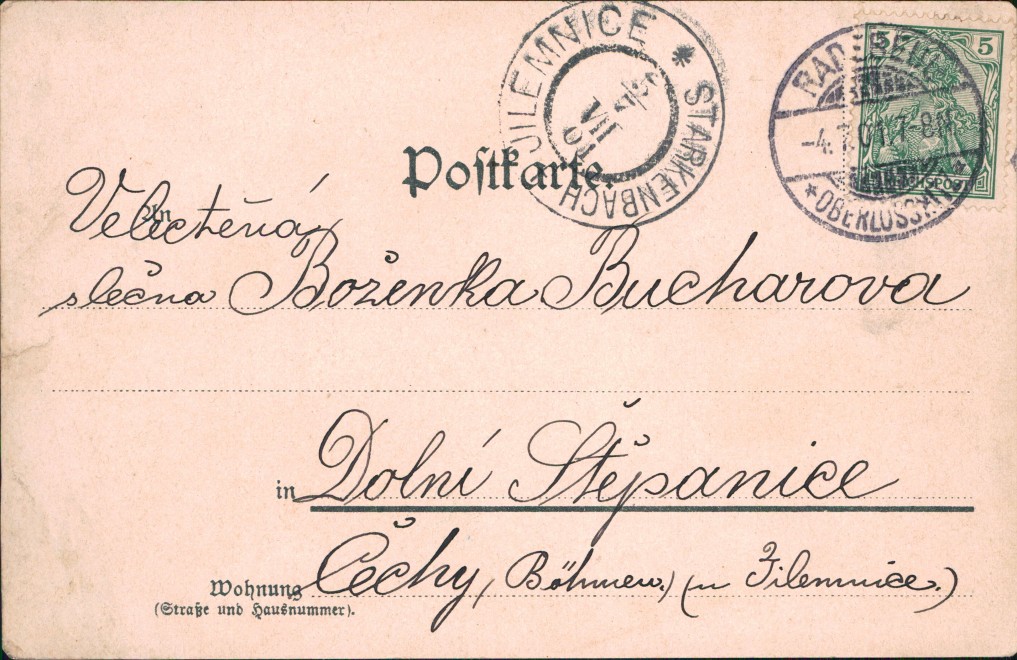 JILEMNICE * STARKENBACH
5/7
VII
01
5 5
-4.7.01.7-8N.
*OBERLÖSSN
Postkarte.
An
Velectěná
slečna Boženka Bucharova
in Dolní Štěpanice
Wohnung Čechy, (Böhmen.) (u Jilemnice.)
(Straße und Hausnummer).